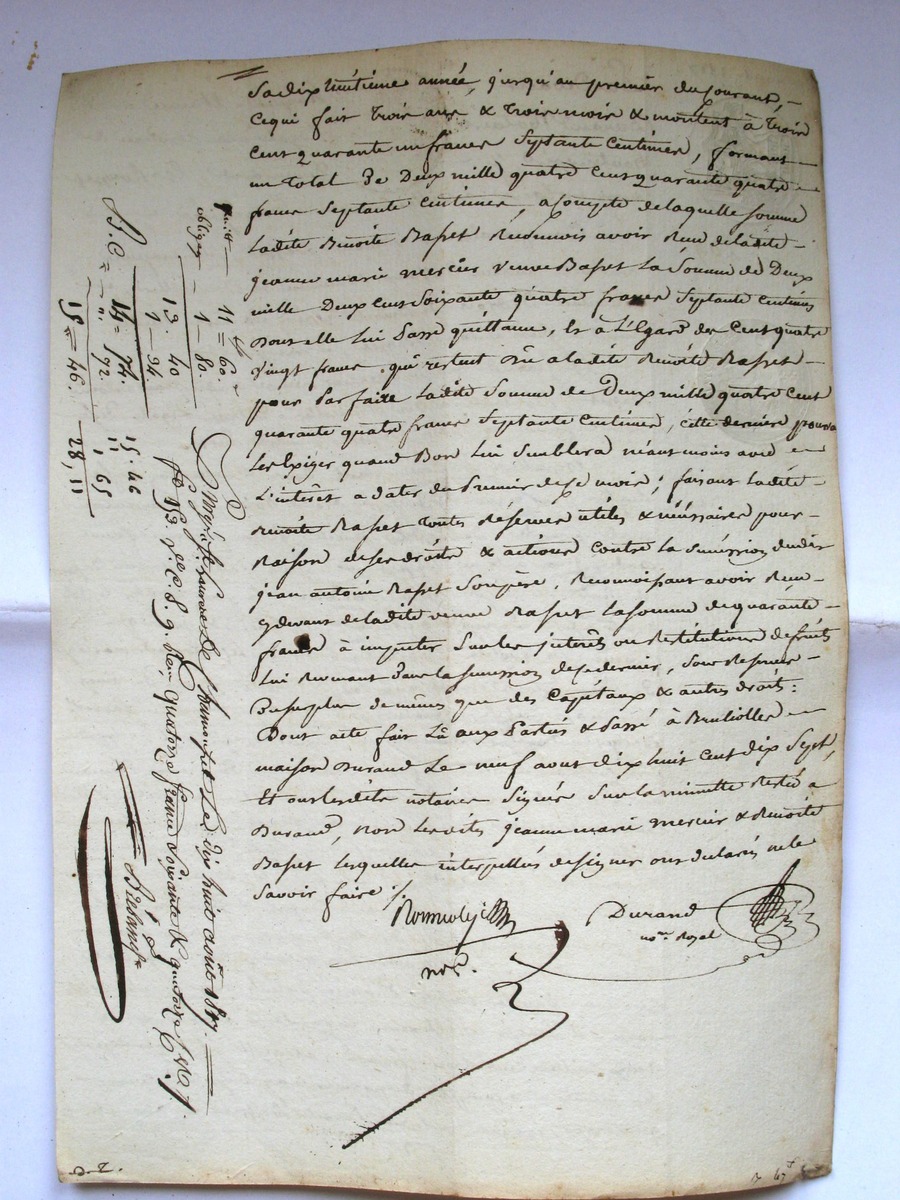 Sa dix huitieme année, jusqu'au premier du courant,
ce qui fait trois ans & trois mois & montent à trois
cent quarante un francs Septante Centimes, formant
un total De Deux mille quatre cent quarante quatre
francs Septante centimes, a compte de laquelle somme
Ladite Benoite Basset Reconnois avoir Reçu de ladite
jeanne marie mercier veuve Basset La Somme de Deux
mille Deux cent Soixante quatre francs Septante centimes
Dont elle lui passe quittance, Et à l'Egard des Cent quatre
Vingt francs qui restent Dû a ladite Benoite Basset
pour parfaire Ladite Somme de Deux mille quatre cent
quarante quatre francs Septante Centimes, cette derniere pourra
Les Exiger quand Bon Lui Semblera néant moins avec
L'intérêt a dater du Premier de ce mois; faisant Ladite
Benoite Basset toutes Réserves utiles & nécessaires pour
Raison de ses droits & actions contre la succession dudit
jean antoine Basset Son père, Reconnoissant avoir Reçu
cy devant de ladite veuve Basset La somme de quarante
francs à imputer Sur les interêts ou Restitutions de fruits
Lui Revenant Dans la succession de ce dernier, Sous Reserve
Du surplus de mêmes que des Capitaux & autres droits:
Dont acte fait Lû aux Parties & Passé à Brullioles
maison Durand Le neuf aout dix huit cent dix Sept,
Et ont lesdits notaires Signés Sur la minutte Restée a
Durand, non Lesdites jeanne marie mercier & Benoite
Basset Lesquelles interpellées de signer ont declaré ne le
Savoir faire ./.
Durand
no.re Royal
not.
quitt 11 = 60.
obligaon 1 - 80.
13. 40
1 - 34
14 = 74.
B. C = n. 72
15 = 46.
15. 46
11
1, 65
28, 11
Enreg.é à St Laurent De Chamousset Le dix huit août 1817.
fo 152 r.o c. 8. 9. Reçu quatorze francs Soixante & quatorze c